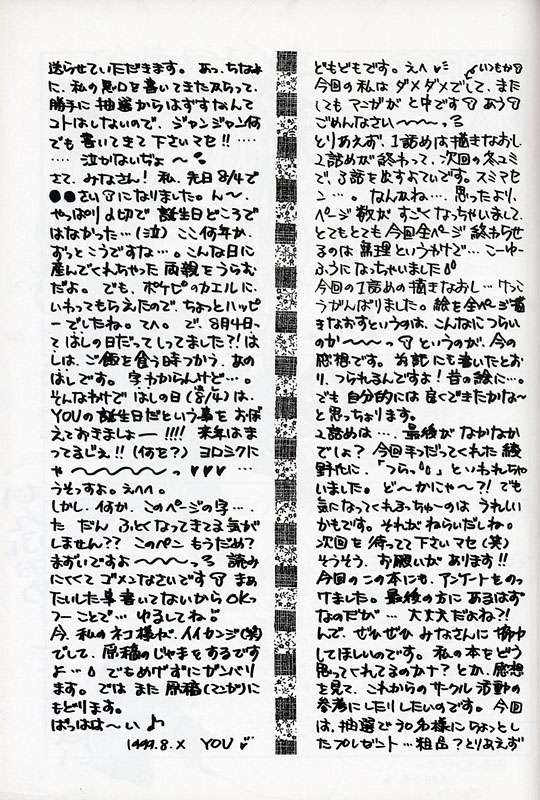 どもどもです。えへ いつもか
今回の私は ダメダメでして、また
しても マンガが と中です あう
ごめんなさい〜〜〜っ
とりあえず、1話めは描きなおし
2話めが終わって、次回の冬コミ
で、3話を出すよていです。スミマセ
ン…。なんかね… 思ったより、
ページ数が すごくなっちゃいまして、
とてもとても今回全ページ 終わらせ
るのは無理というわけで… こーゆー
ふうになっちゃいました
今回の1話めの描きなおし…けっこ
うがんばりました。絵を全ページ描
きなおすというのは、こんなにつらい
のか〜〜〜っ というのが、今の
感想です。前記にも書いたとお
り、つられるんですよ!昔の絵に…。
でも 自分的には 良くできたかな〜
と思っちょります。
2話めは…、最後がなかなか
でしょ? 今回手つだってくれた綾
野化に、「つらっ」といわれちゃ
いました。ど〜かにゃ〜?! でも
気になってくれるっちゅーのは うれしい
かもです。それが ねらいだしね。
次回を待ってて下さいマセ(笑)
そうそう、お願いが あります!!
今回のこの本にも、アンケートをのっ
けました。最後の方に あるはず
なのだが… 大丈夫だよね?!
んで、ぜひぜひ みなさんに
してほしいのです。私の本をどう
思ってくれてるのかナ? とか、感想
を見て、これからのサークル活動の
参考にしたりしたいのです。今回
は、抽選で30名様にちょっとし
たプレゼント…粗品?とりあえず
送らせていただきます。あっ、ちなみ
に、私の悪口を書いてきたからって、
勝手に抽選からはずすなんて
コトはしないので、ジャンジャン何
でも 書いてきて下さいマセ!! ……
…… 泣かないぢょ〜
さて、みなさん! 私、先日8/4で
●●さいになりました。ん〜、
やっぱり〆切で 誕生日どころで
はなかった…(泣) ここ何年か、
ずっとこうですな…。こんな日に
産んでくれちゃった両親をうらむ
だよ。でも、ポケピのカエルに
いわってもらえたので、ちょっとハッピ
ーでしたね。てへ。で、8月4日っ
て はしの日だってしってました?! は
しは、ご飯を食う時つかう、あの
はしです。字わからんけど…。
そんなわけで はしの日(8/4)は、
YOUの誕生日だという事を おぼ
えておきましょー!!!! 来年はま
ってるじぇ!!(何を?) ヨロシクに
ゃ〜〜〜〜〜っ ♥♥♥ ……
うそっすよ。えへへ。
しかし、何か、このページの字…、
た だん ふとくなってきてる気が
しません?? このペン もうだめで
まずいですよ〜〜〜っ 読み
にくくて ゴメンなさいです まぁ
たいした事書いてないからOKっ
つーことで… ゆるしてね
今、私のネコ様が、イイカンジ(笑)
でして、原稿のじゃまをするです
よ… でもめげずにガンバリ
ます。では また 原稿(マンガ)に
もどります。
ばっはは〜い♪
1999.8.X YOU